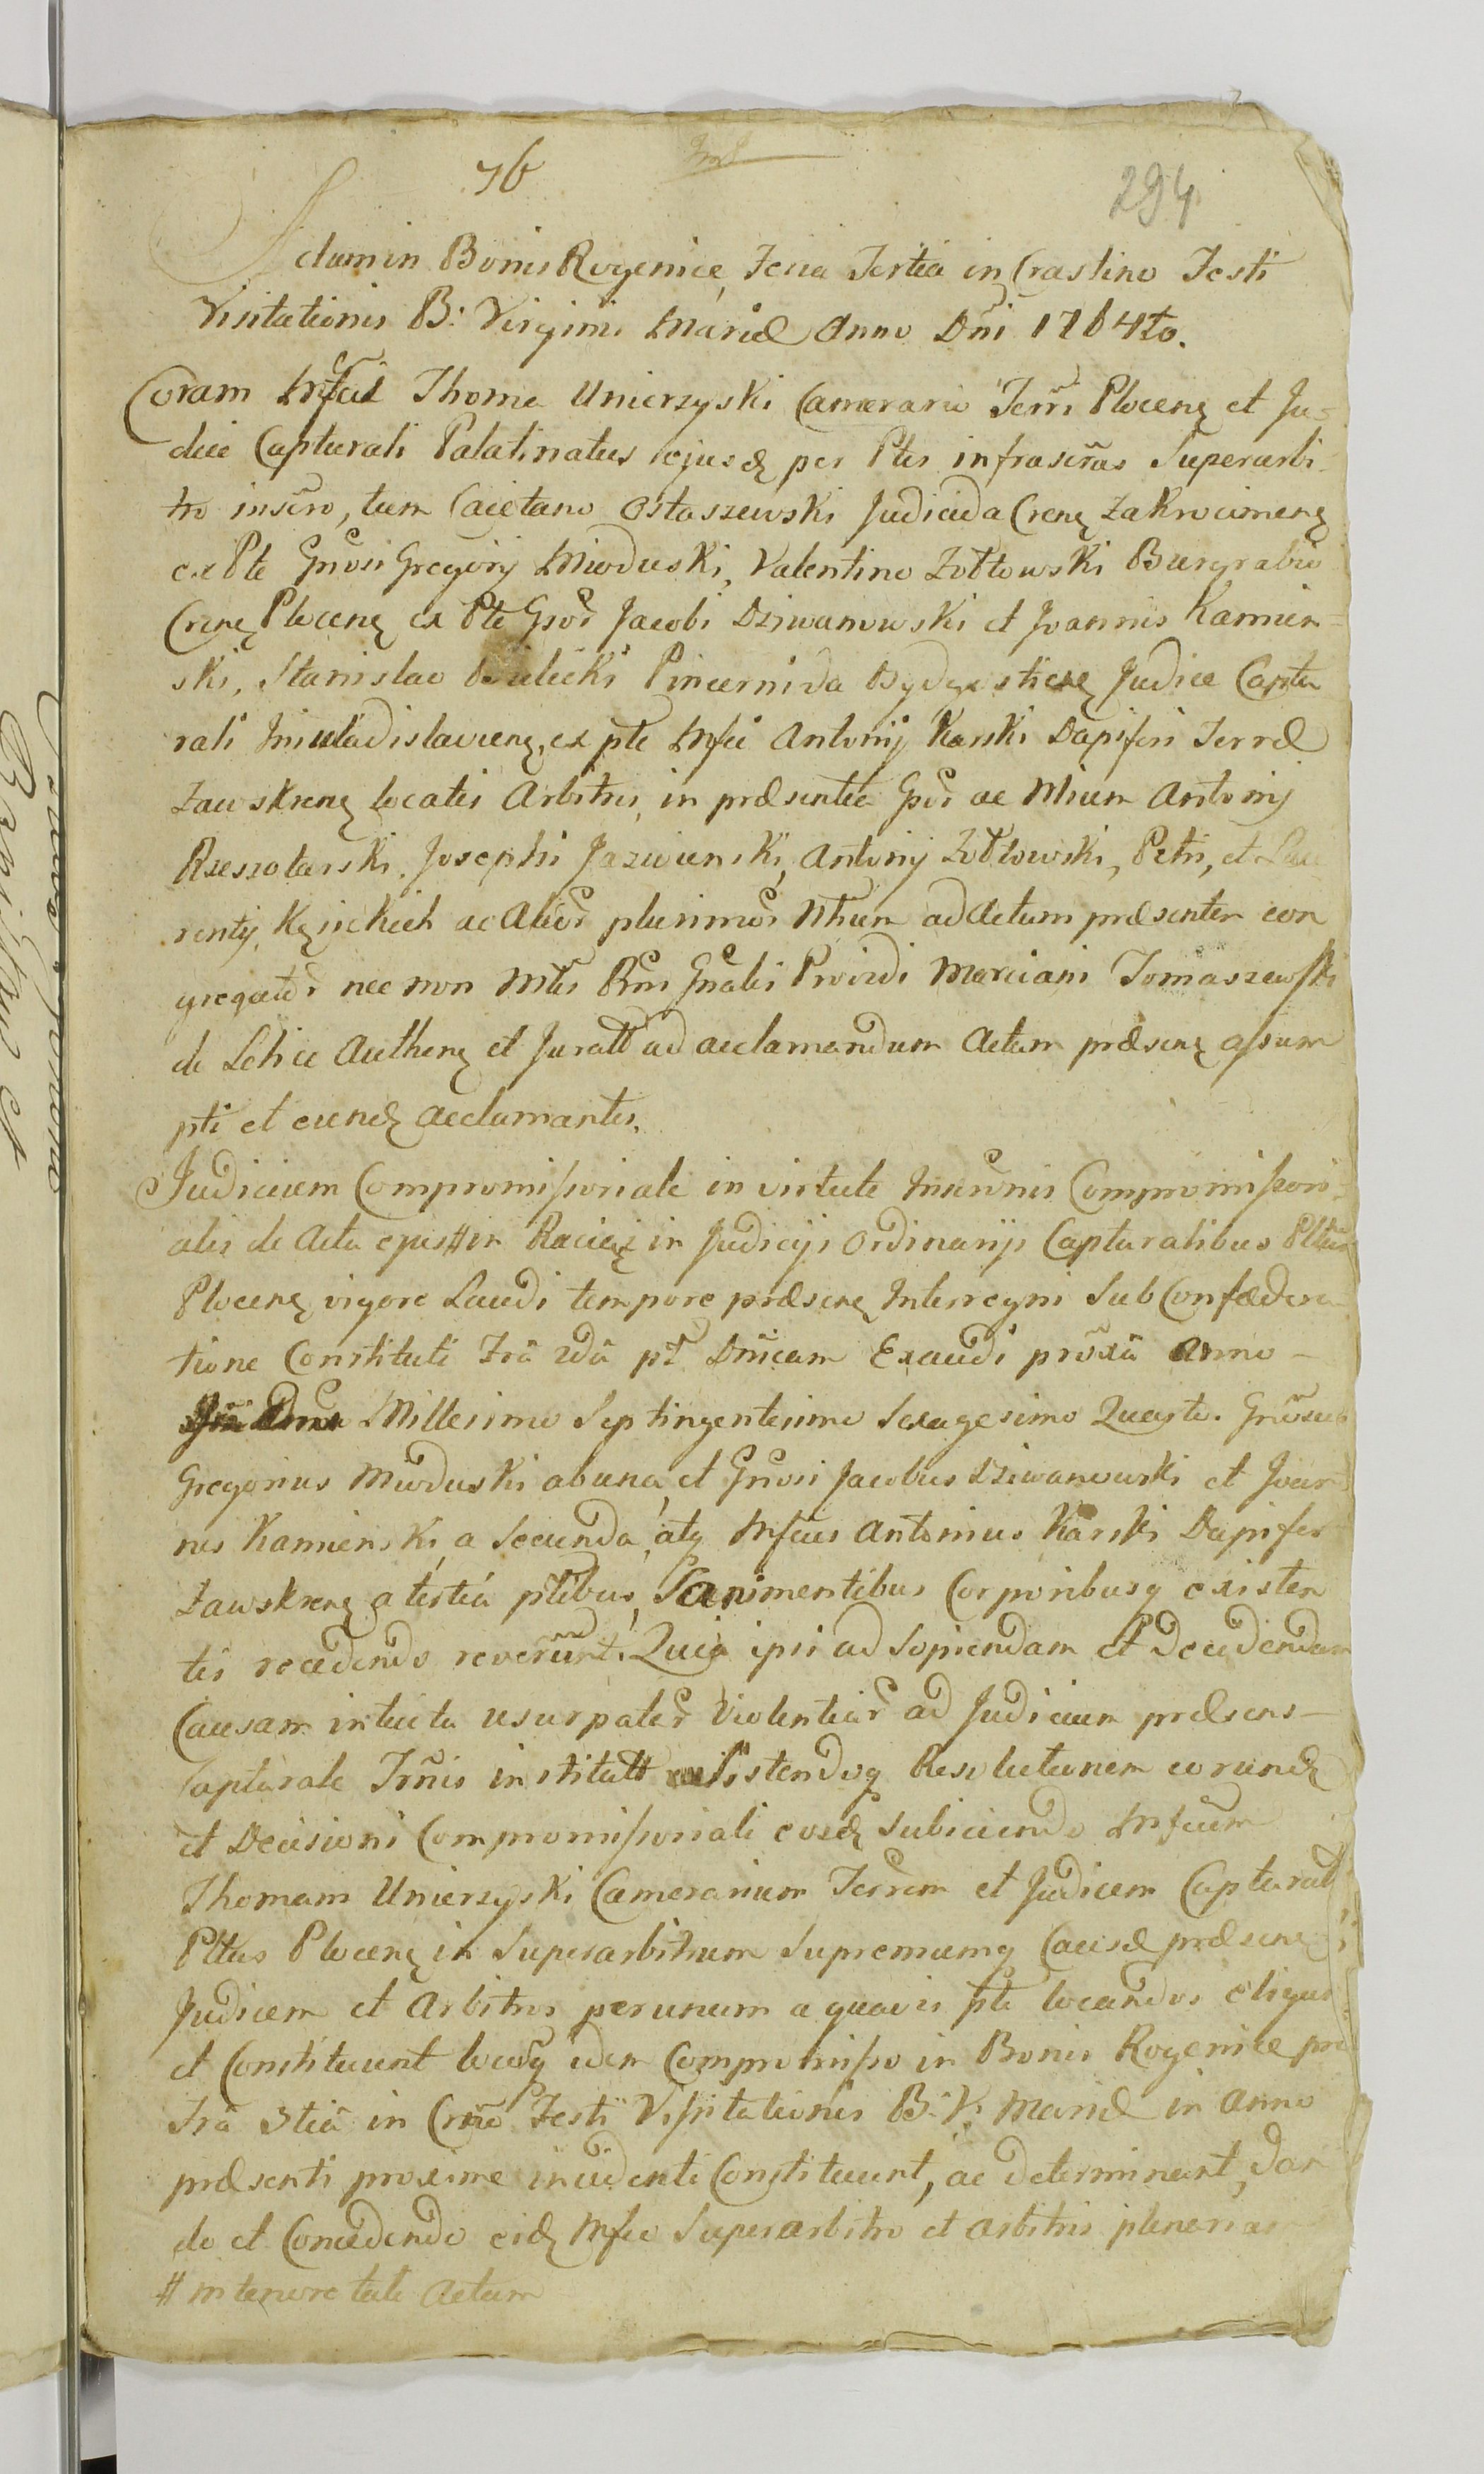 76
294
Actum in Bonis Rogenice, Feria Tertia in Crastino Festi
Visitationis B: Virginis Mariæ Anno Dñi 1764to.
Coram Mfco Thoma Umierzyski Camerario Terrī Plocenę et Ju=
dice Capturali Palatinatus ejusdę per Ptes infrascr̃as Superarbi
tro inscr̃o, tum Caietano Ostaszewski Judicida Crenę Zakrocimenę
ex Pte Gnosi Gregorij Mioduski, Valentino Żółtowski Burgrabio
Crenę Plocenę ex Pte Gsor̃ Jacobi Dziwanowski et Joannis Kamien=
ski, Stanislao Bielicki Pincernida Bydgosticenę Judice Captu
rali Iniuladislavienę, ex pte Mfci Antonij Karski Dapiferi Terræ
Zawskrenę locatis Arbitris, in præsentia Gsor̃ ac Nlium Antonij
Rzeszotarski, Josephi Jaziwinski, Antonij Żółtowski, Petri, et Lau
rentij, Kęsickich ac Alior̃ plurimor̃ Nlium ad Actum præsentem con
gregator̃ nec non Mtis Rgni Gnalis Providi Marciani Tomaszewski
de Lelice Authenę et Juratt ad acclamandum Actum præsenę assum
pti et eundę acclamantis.
Judicium Compromissoriale in virtute Inscr̃onis Compromissori=
alis de Actu ejus # in Raciąż in Judicijs Ordinarijs Capturalibus Pltus
Plocenę vigore Laudi tempore præsenę Interregni Sub Confœdera
tione Constituti Fr̃a 2da pt̃ Dñicam Exaudi prox̃a Anno –
Millesimo Septingentesimo Sexagesimo Quarto. Gnosus
Gregorius Mioduski ab una, et Gnosi Jacobus Dziwanowski et Joan
nes Kamienski, a Secunda, atq Mfcus Antonius Karski Dapifer
Zawskrenę a tertia ptibus, Sani mentibus Corporibusq existen
tes recedendo recoverunt. Quia ipsi ad Sopiendam et Decidendam
Causam intuitu usurpatar̃ Violentiar̃ ad Judicium præsens –
Capturale Tr̃nis institutt Sistendoq Resolutionem eorundę
et Decisioni Compromissoriali eosdę Subiiciendo Mfcum
Thomam Umierzyski Camerarium Terrem et Judicem Capturalē
Pltus Plocenę in Superarbitrum Supremumq Causæ præsenę
Judicem et Arbitros per unum a quavis pte locandos eligunt
et Constituunt locumq idem Compromisso in Bonis Rogenice pro
Fr̃a 3tia in Crño Festi Visitationis B: V: Mariæ in Anno
præsenti proxime incidenti Constituunt, ac determinant, dan
do et Concedendo eidę Mfco Superarbitro et Arbitris plenariam
# in tenore tali Actum